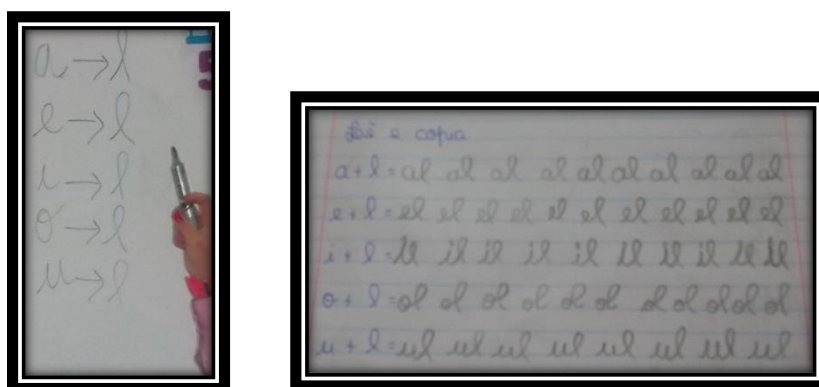 a → l
e → l
i → l
o → l
u → l
Lê e copia
a + l = al al al al al al al al al al
e + l = el el el el el el el el el el el
i + l = il il il il il il il il il il
o + l = ol ol ol ol ol ol ol ol ol ol ol
u + l = ul ul ul ul ul ul ul ul